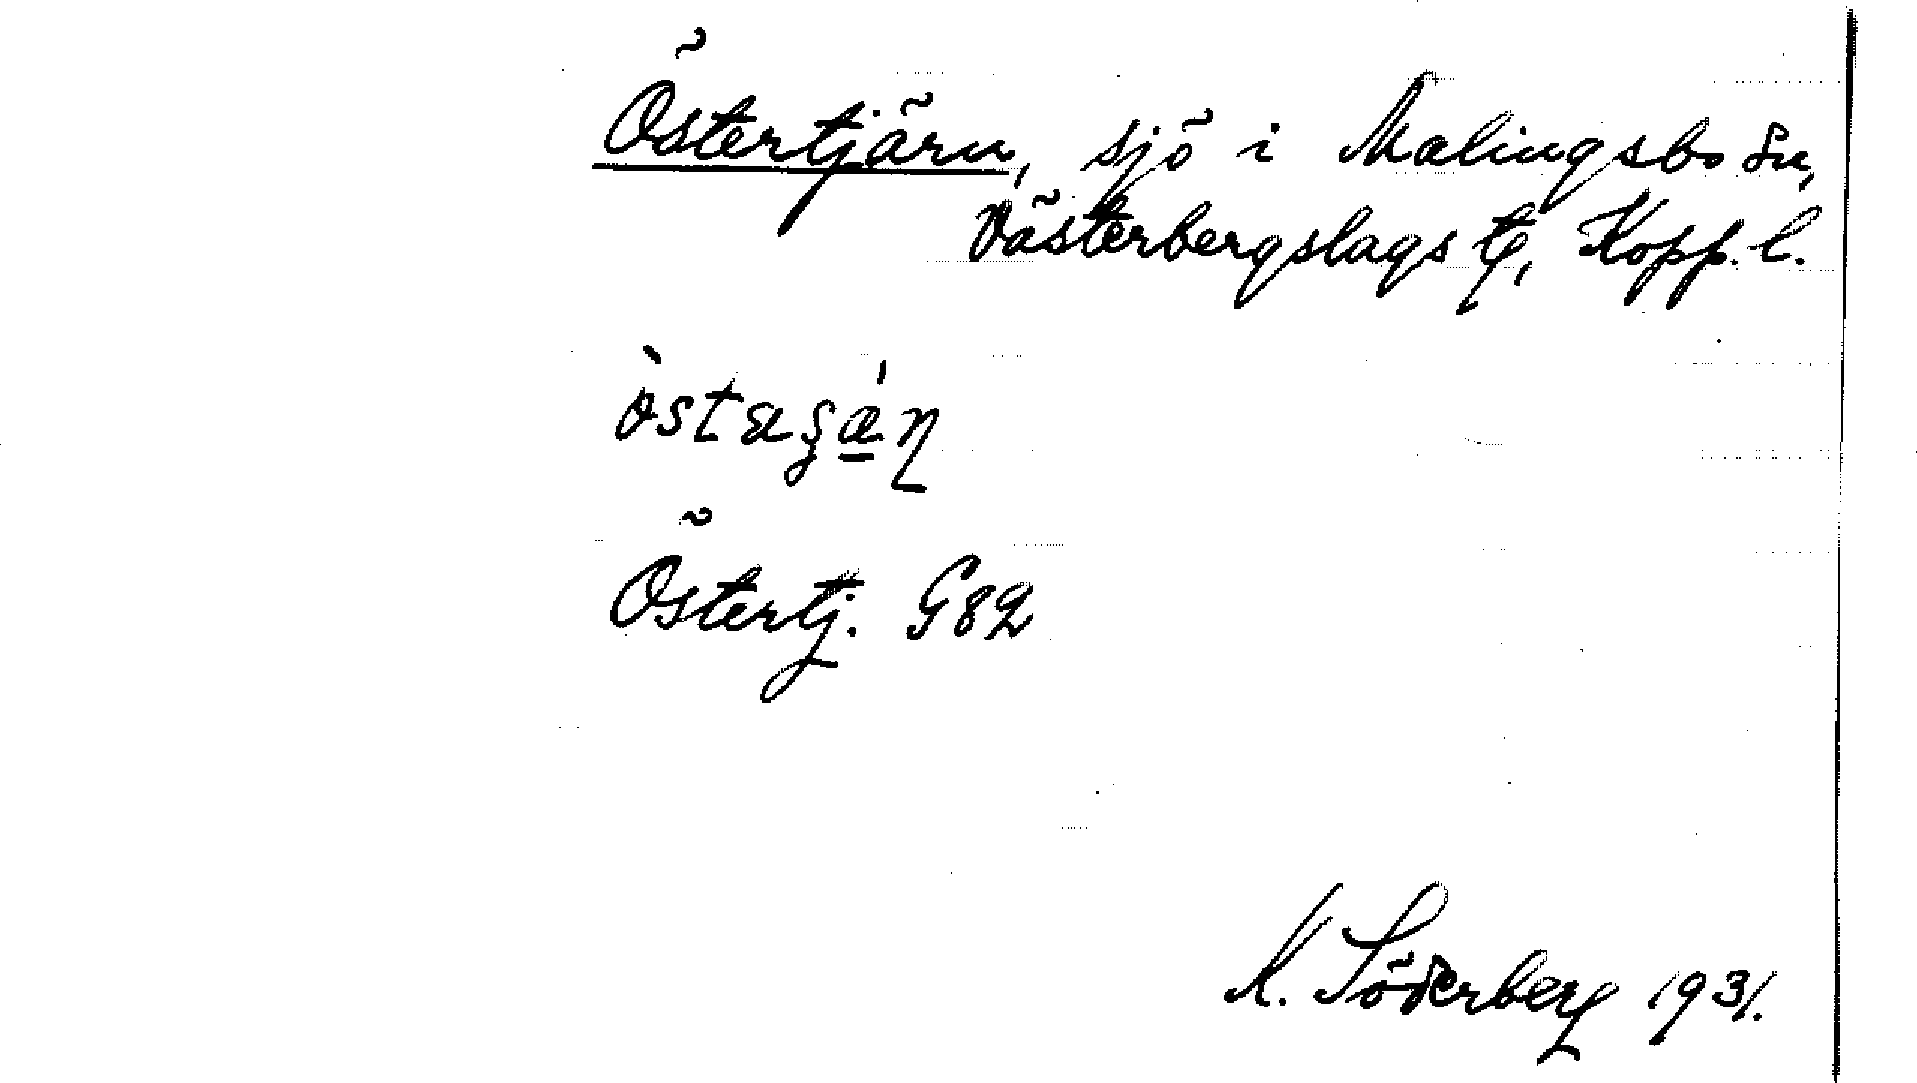 Östertjärn, sjö i Malingsbo sn,
Västerbergslags tg, Kopp. l.
Östertj. G82
K. Söderberg 1931.